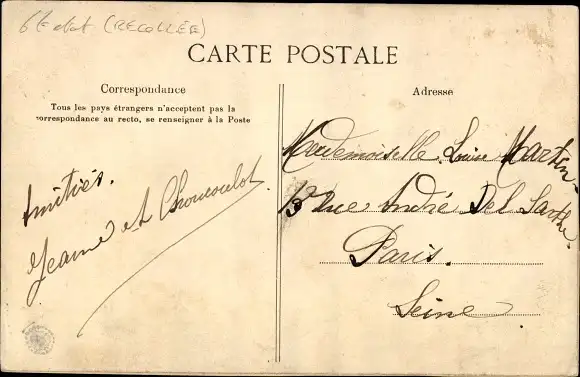 (RECOLLÉE)
CARTE POSTALE
Correspondance
Tous les pays étrangers n'acceptent pas la
correspondance au recto, se renseigner à la Poste
Adresse
Amitiés.
Jeanne et
Mademoiselle Louise Martin
13 rue André Del Sarthe.
Paris.
Seine